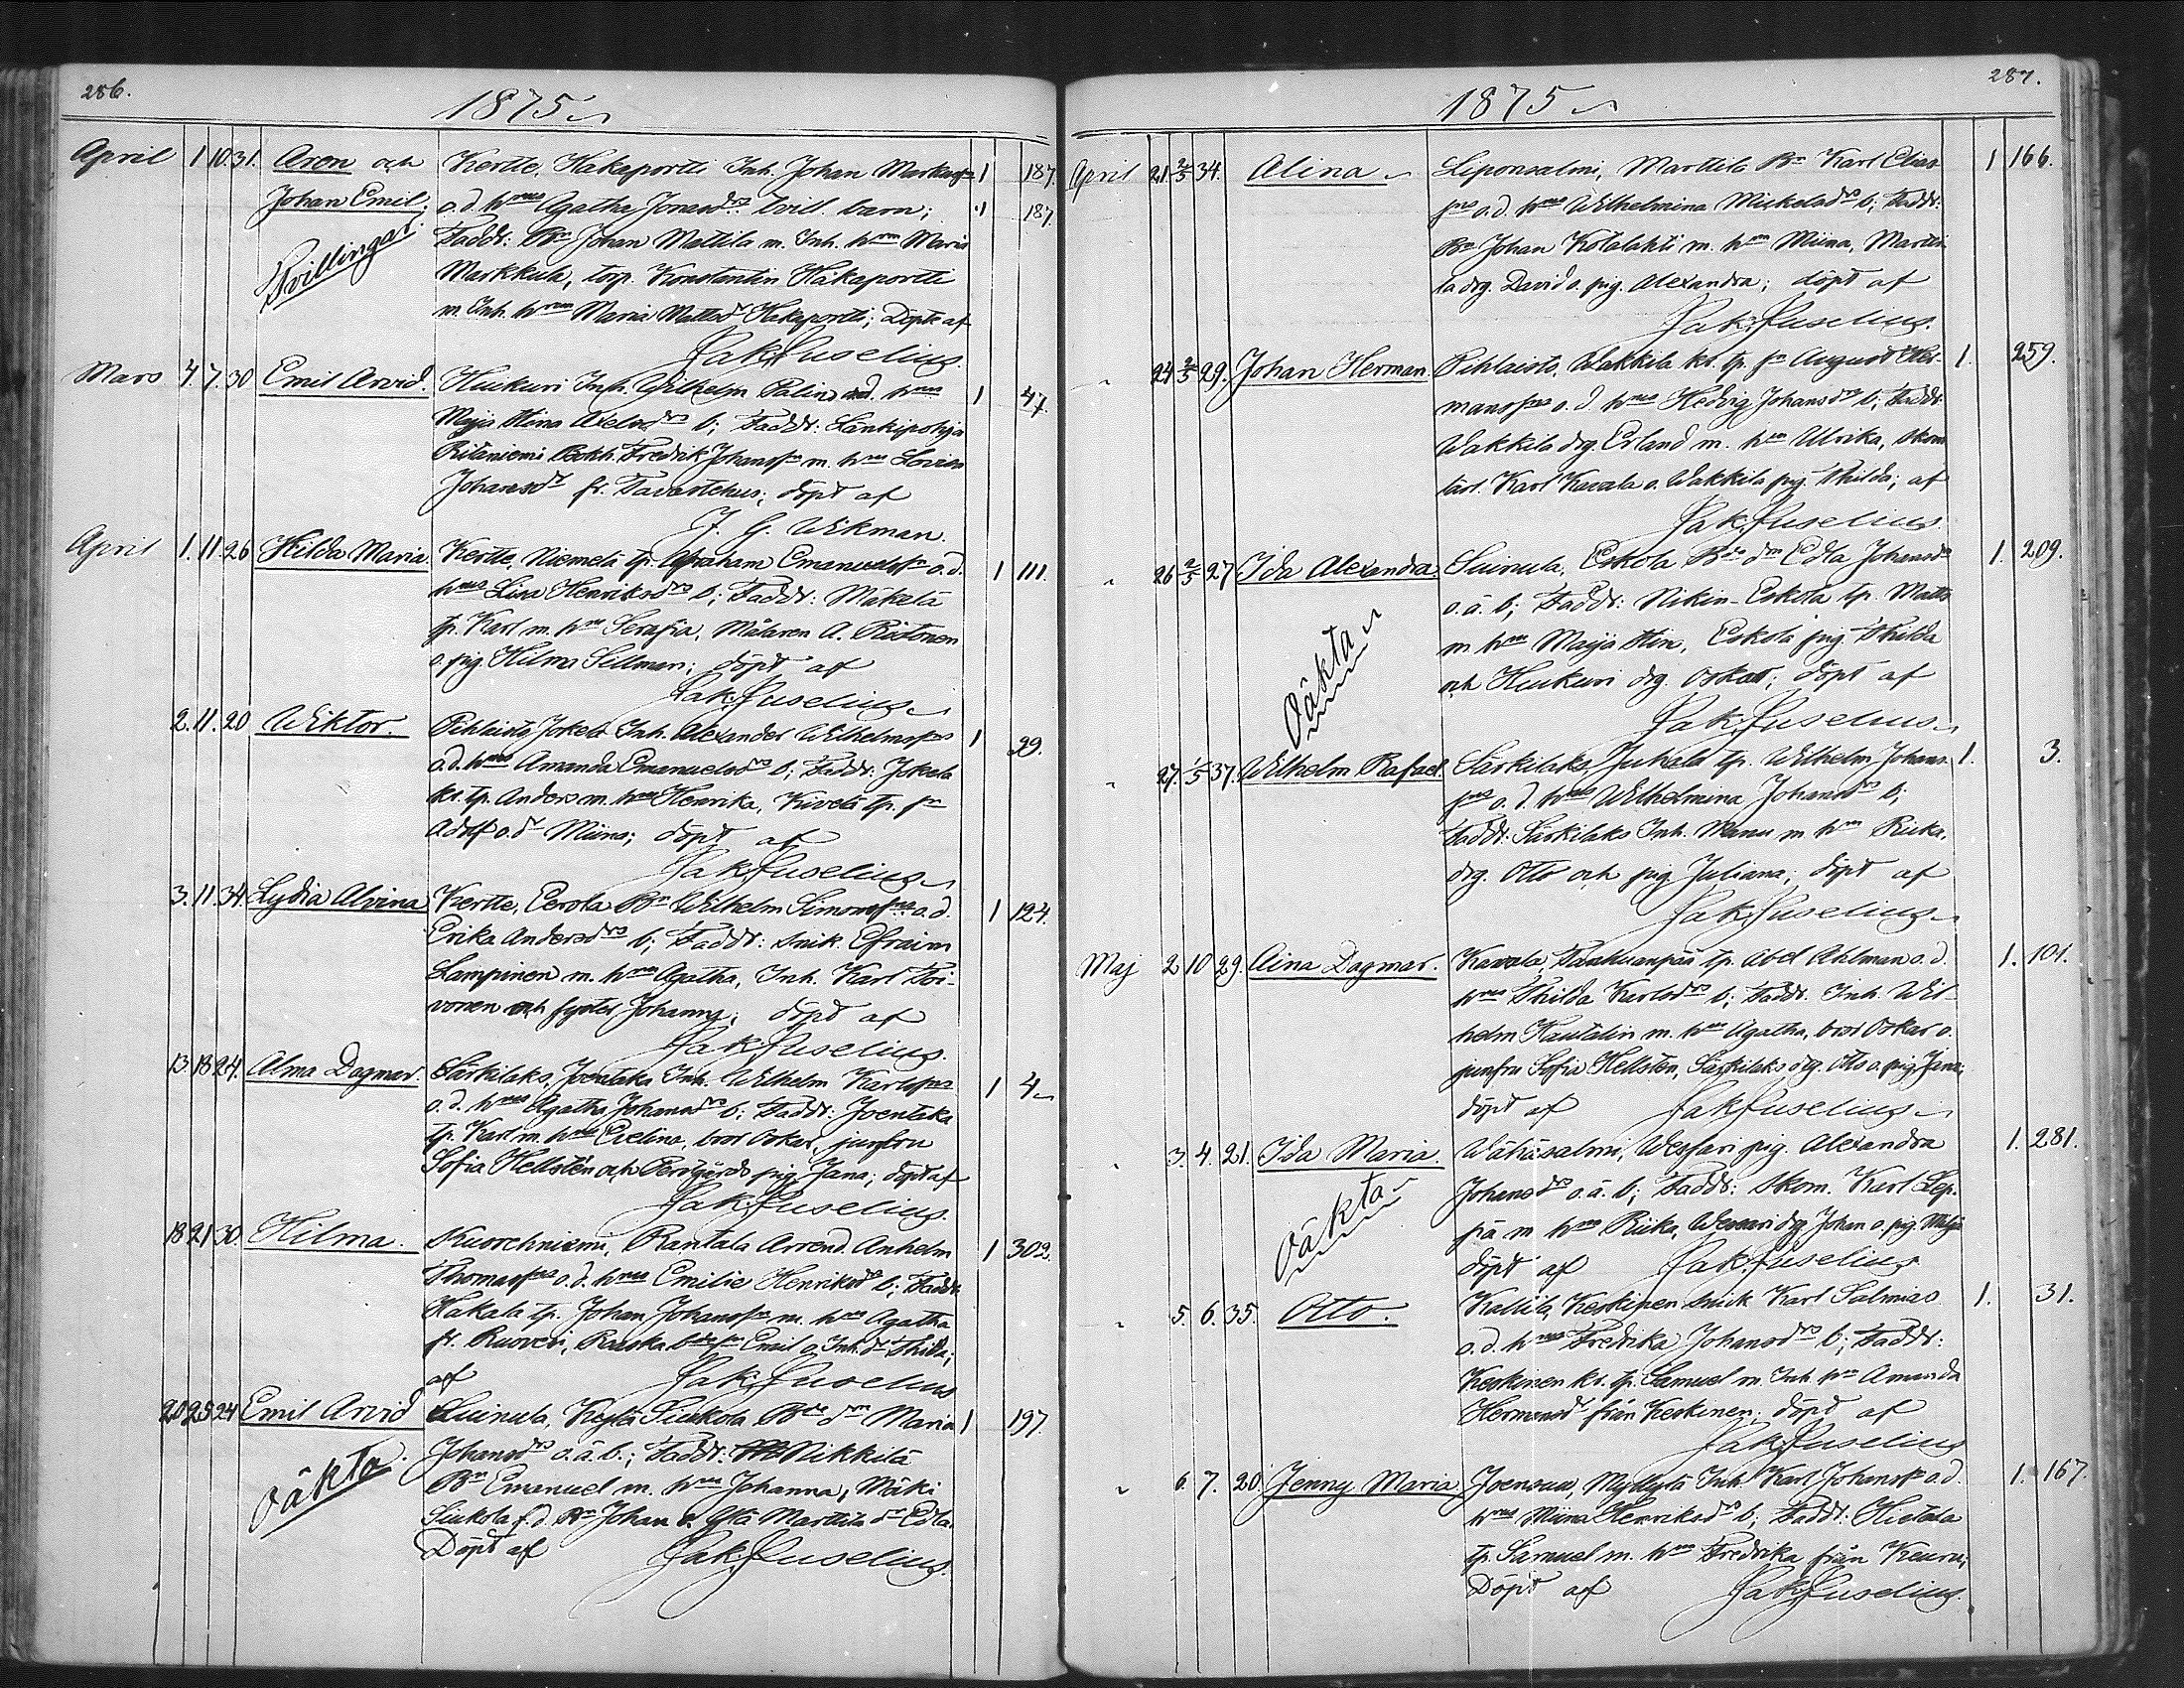 286.
1875
April 1 10 31. Aron och Kertte, Hakaportti Inh. Johan Markus 1 187.
Johan Emil. o. d. hus Agatha Jonasdrs tvill. barn; 1 187.
Tvillingar. Faddr: Bn Johan Mattila m. Inh. hun Maria
Markkula, torp. Konstantin Hakaportti
m. Inh. hun Maria Mattsdr Hakaportti; Döpte af
Jak. Juselius.
Mars 4 7. 30 Emil Arvid. Huikuri Inh. Wilhelm Palin o. d. hus 1 47.
Maija Stina Axelsdrs b; Faddr: Länkipohja
Ritaniemi Bokh. Fredrik Johansson m. hus Lovisa
Johansdr fr. Tavastehus; döpt af
J. G. Wikman.
April 1. 11. 26 Hilda Maria. Kertte, Niemelä tp. Abraham Emanuelss o. d. 1 111.
hus Lisa Henriksdrs b; Faddr: Mäkelä
tp. Karl m. hu Serafia, Målaren A. Röstonen
o. pig. Hilma Sillman; döpt af
Jak. Juselius
2. 11. 20 Wiktor. Pihlaisto, Jokela Inh. Alexander Wilhelmss 1 29.
o. d. hus Amanda Emanuelsdrs b; Faddr: Jokela
kr. tp. Anders m. hun Henrika, Kivelä tp. sn
Adolf o. dr Miina; döpt af
Jak. Juselius
3. 11. 34. Lydia Alvina Kertte, Eerola Bn Wilhelm Simonss o. d. 1 124.
Erika Andersdrs b; Faddr: snik. Efraim
Lampinen m. hun Agatha, Inh. Karl Toi-
vonen och syster Johanna; döpt af
Jak. Juselius.
13. 18 24. Alma Dagmar. Särkilaks, Joentaka Inh. Wilhelm Karlss 1 4
o. d. hus Agatha Johansdrs b; Faddr: Joentaka
tp. Karl m. hun Evelina, bror Oskar, junfru
Sofia Hellstén och Perilgårds pig. Jana; döpt af
Jak. Juselius.
18 21 30. Hilma. Kuorehniemi, Rantala Arrend. Anhelm 1 302.
Thomass o. d. hus Emilie Henriksdrs b; Faddr:
Hakala tp. Johan Johansson m. hun Agatha
fr. Ruovesi, Raiska bdesn Emil o. Inh. dr Thilda;
af Jak. Juselius
20 25 24 Emil Arvid Suinula, Kylä Siukola Bde drn Maria 1 197.
Johansdrs o. ä. b.; Faddr: Nikkilä
Oäkta. Bn Emanuel m. hun Johanna, Mäki
Siukola f. d. Bn Johan o. Ylä Marttila dr Edla.
Döpt af Jak. Juselius.
287.
1875
April 21 2/5 34. Alina Liponsalmi, Marttila Bn Karl Elias 1 166.
sns o. d. hus Wilhelmina Mickelsdrs b; Faddr:
Bn Johan Kotalahti m. hun Miina, Martti
la drg. David o. pig. Alexandra; döpt af
Jak. Juselius.
" 24 2/5 29. Johan Herman. Pihlaisto, Wakkila kr. tp. sn August Her- 1. 259.
manss o. d. hus Hedvig Johansdrs b; Faddr.
Wakkila drg. Erland m. hun Ulrika, skom
lärl. Karl Kavala o. Wakkila pig. Thilda; af
Jak. Juselius.
" 26 2/5 27 Ida Alexandra. Suinula, Eskola Bde drn Edla Johansdrs 1. 209.
o. ä. b; Faddr: Nikin-Eskola tp. Matts
Oäkta m hun Maija Stin, Eskola pig. Thilda
och Huikuri drg. Oskar; döpt af
Jak. Juselius
" 27. 1/5 37. Wilhelm Rafael. Särkilaks, Juhala tp. Wilhelm Johans 1. 3.
sns o. d. hus Wilhelmina Johansdrs b;
Faddr: Särkilaks Inh. Manu m hun Riika,
drg. Otto och pig Juliana; döpt af
Jak. Juselius
Maj 2 10 29. Aina Dagmar. Kavala, Parkuanpää tp. Abel Ahlman o. d. 1. 101.
hus Thilda Karlsdrs b; Faddr. Inh. Wil-
helm Kautalin m. hun Agatha, bror Oskar o.
junfru Sofia Hellstén, Särkilaks drg. Otto o. pig. Jana;
döpt af Jak. Juselius
" 3. 4. 21. Ida Maria. Wähäsalmi, Wessari pig. Alexandra 1. 281.
Johansdrs o. ä. b; Faddr: Skom. Karl Lep-
Oäkta pä m hun Riika, Wessari drg Johan o. pig. Maija
döpt af Jak. Juselius
" 5. 6. 35. Otto. Kallila, Keskinen snick Karl Salmias 1. 31.
o. d. hus Fredrika Johansdrs b; Faddr:
Keskinen kr. tp. Samuel m. Inh. hun Amanda
Hermansdr från Keskinen; döpt af
Jak. Juselius
" 6. 7. 20. Jenny Maria Joensuu, Myllylä Inh. Karl Johanss o. d. 1. 167.
hus Miina Henriksdrs b; Faddr: Hietala
tp. Samuel m. hun Fredrika från Keuru;
Döpt af Jak. Juselius.